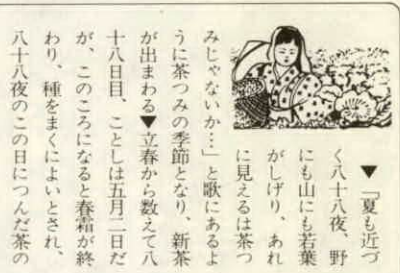 ▼「夏も近づ
く八十八夜、野
にも山にも若葉
がしげり、あれ
に見えるは茶つ
みじゃないか…」と歌にあるよ
うに茶つみの季節となり、新茶
が出まわる▼立春から数えて八
十八日目、ことしは五月二日だ
が、このころになると春霜が終
わり、種をまくによいとされ、
八十八夜のこの日につんだ茶の